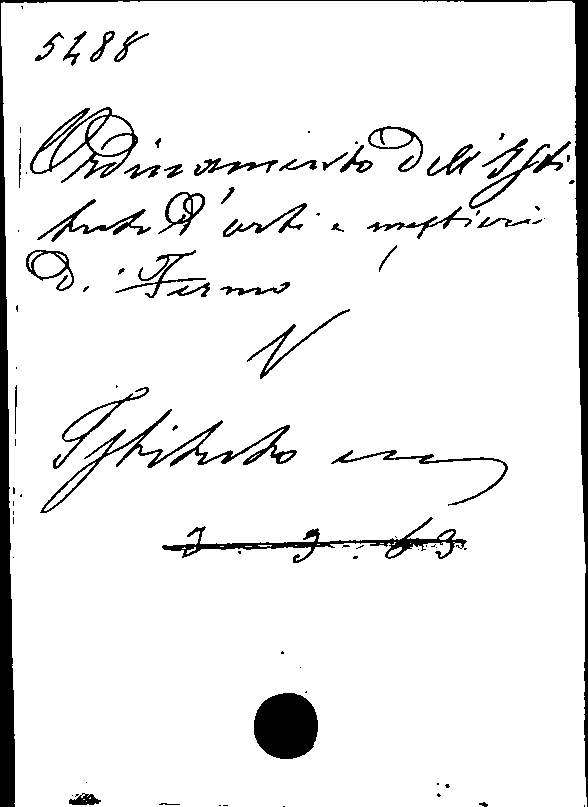 5288
Ordinamento dell'Isti
tuto d'arti e mestieri
di Fermo
V
Istituto ecc
3. 3. 63